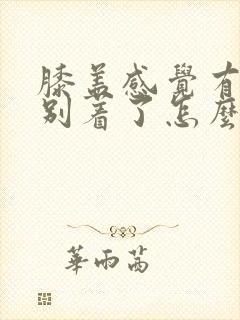 膝盖感覺有
别着了怎麼
華雨茜